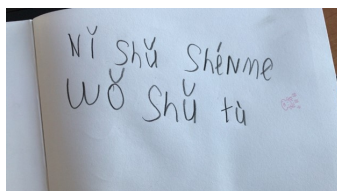 Nǐ Shǔ Shénme
Wǒ Shǔ tù